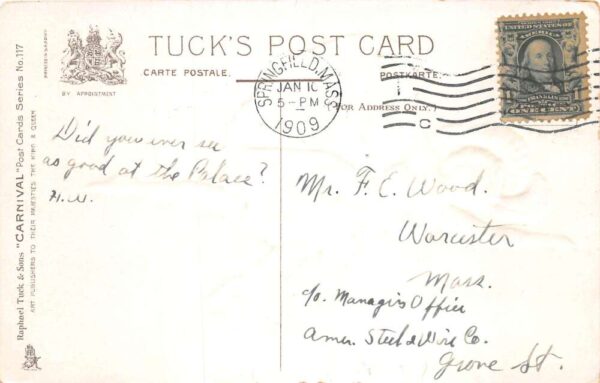 TUCK'S POST CARD
CARTE POSTALE.
POSTKARTE.
(FOR ADDRESS ONLY.)
BY APPOINTMENT
Raphael Tuck & Sons "CARNIVAL" Post Cards Series No. 117
ART PUBLISHERS TO THEIR MAJESTIES THE KING & QUEEN
SPRINGFIELD, MASS.
JAN 10
5-PM
1909
C
UNITED STATES OF
AMERICA
FRANKLIN
ONE CENT
Did you ever see
as good at the Palace?
H.W.
Mr. F. E. Wood.
Worcester
Mass.
c/o Managers Office
Amer. Steel & Wire Co.
Grove St.